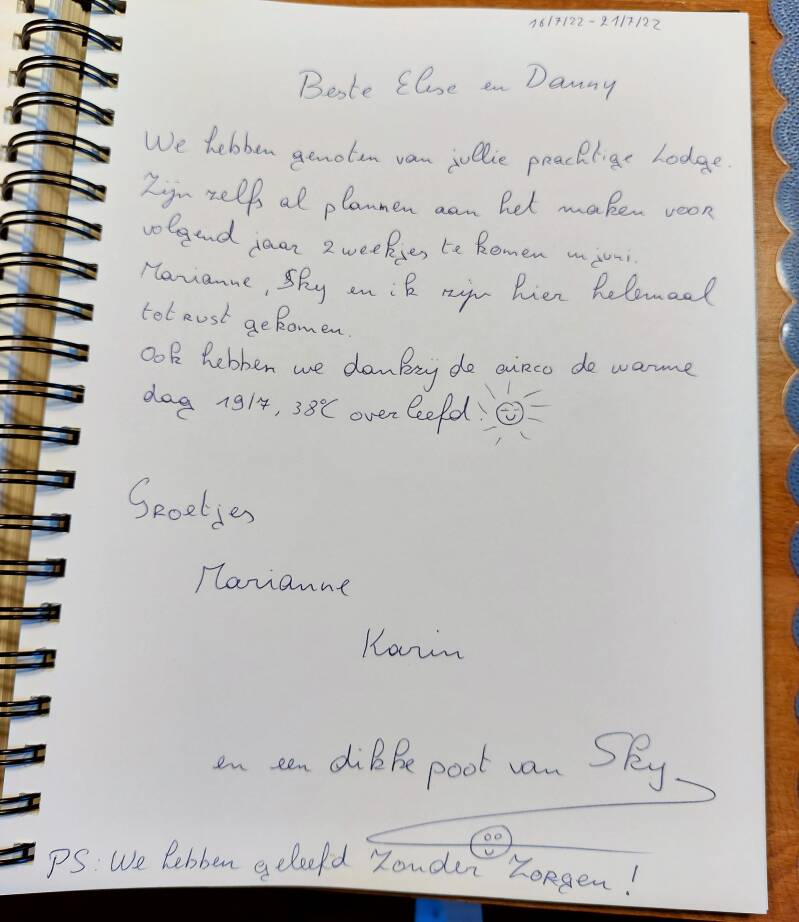 16/7/22 - 21/7/22
Beste Elise en Danny
We hebben genoten van jullie prachtige Lodge.
Zijn zelfs al plannen aan het maken voor
volgend jaar 2 weekjes te komen in juni.
Marianne, Sky en ik zijn hier helemaal
tot rust gekomen.
Ook hebben we dankzij de airco de warme
dag 19/7, 38°C overleefd!
Groetjes
Marianne
Karin
en een dikke poot van Sky
PS: We hebben geleefd Zonder Zorgen!